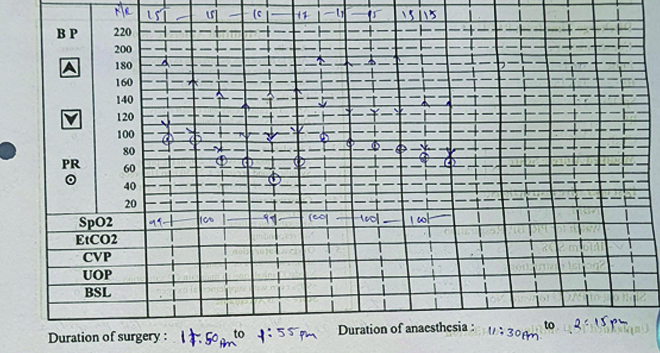 M/R 15 15 16 17 17 15 15 15
BP 220
200
180
160
140
120
100
80
PR 60
40
20
SpO2 99 100 99 100 100 100
EtCO2
CVP
UOP
BSL
Duration of surgery : 11:50 Am to 1:55 pm Duration of anaesthesia : 11:30 Am to 2:15 pm